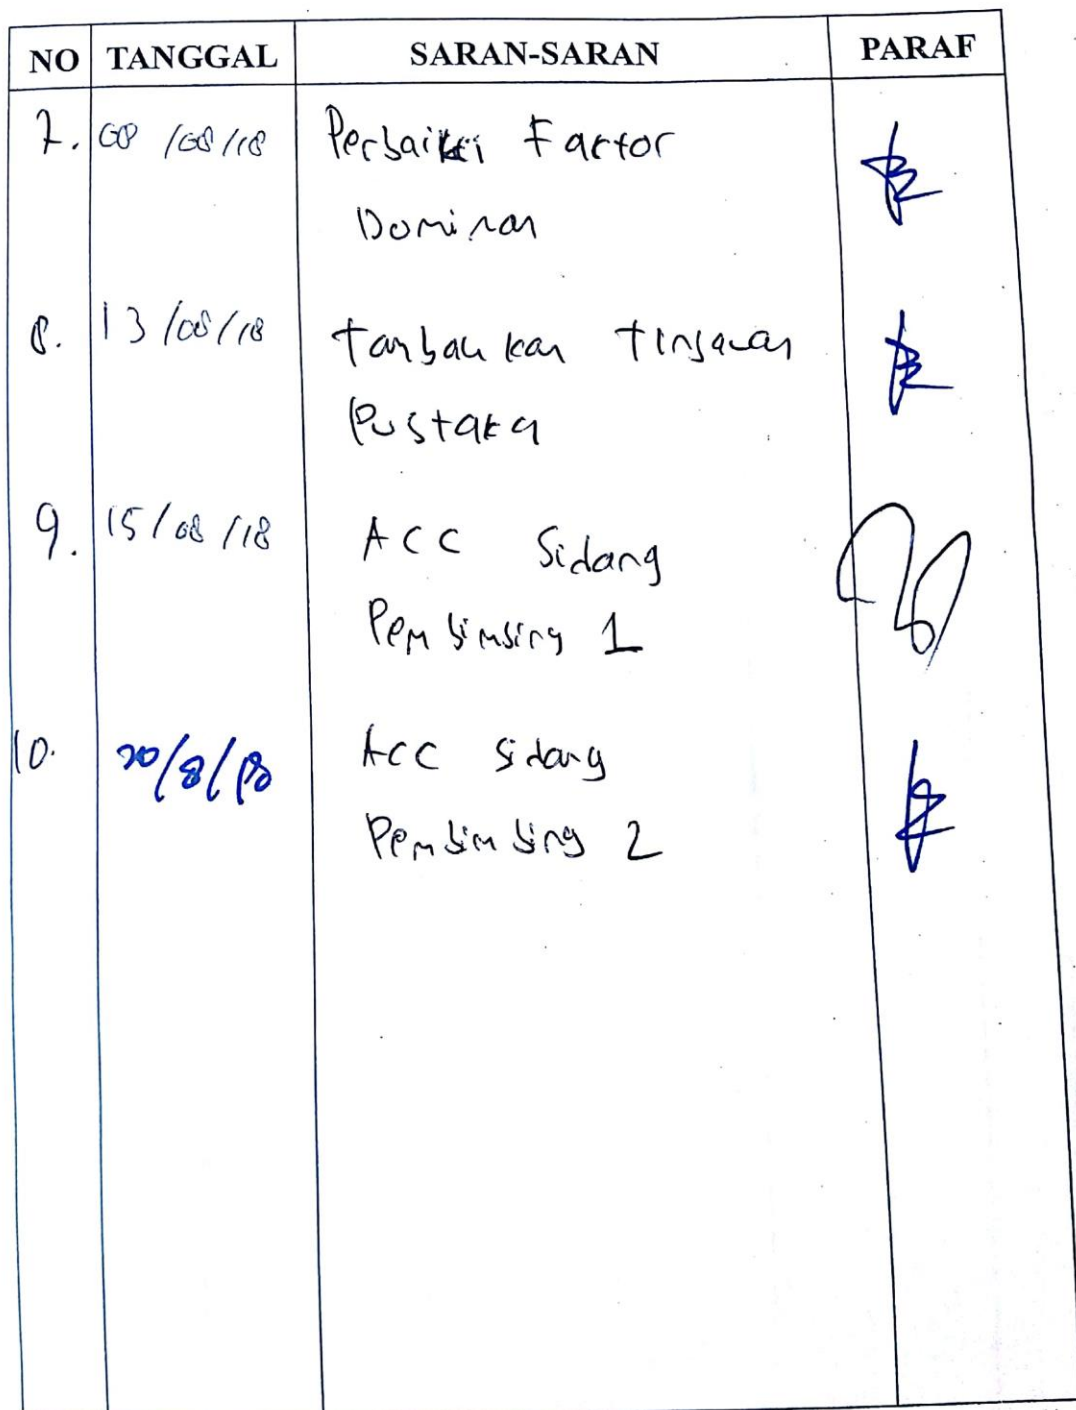 NO TANGGAL SARAN-SARAN PARAF
7. 08/08/18 Perbaiki Faktor
Dominan
8. 13/08/18 Tambahkan Tinjauan
Pustaka
9. 15/08/18 ACC Sidang
Pembimbing 1
10. 20/8/18 ACC Sidang
Pembimbing 2